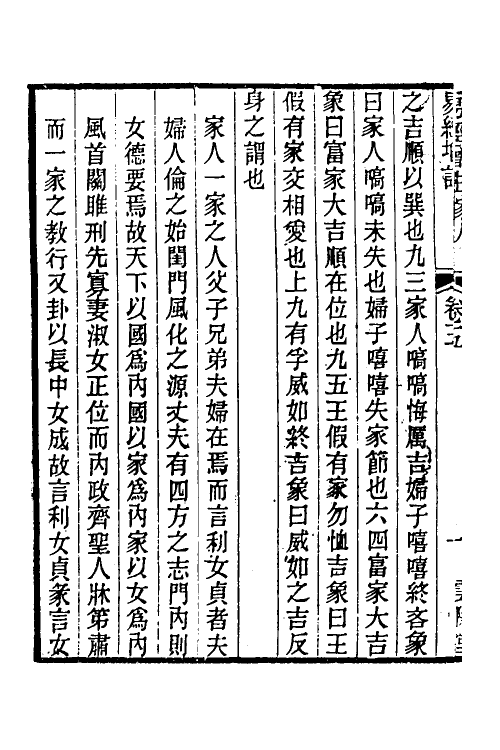 之吉順以巽也九三家人嗃嗃悔厲吉婦子嘻嘻終吝象
曰家人嗃嗃未失也婦子嘻嘻失家節也六四富家大吉
象曰富家大吉順在位也九五王假有家勿恤吉象曰王
假有家交相愛也上九有孚威如終吉象曰威如之吉反
身之謂也
家人一家之人父子兄弟夫婦在焉而言利女貞者夫
婦人倫之始閨門風化之源丈夫有四方之志門內則
女德要焉故天下以國爲內國以家爲內家以女爲內
風首關雎刑先寡妻淑女正位而內政齊聖人牀笫肅
而一家之教行又卦以長中女成故言利女貞彖言女